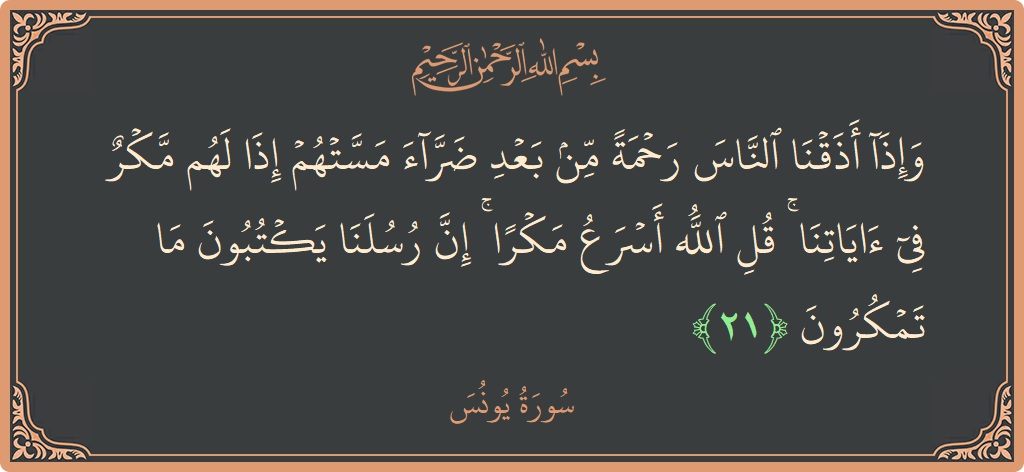 بِسْمِ اللَّهِ الرَّحْمَٰنِ الرَّحِيمِ
وَإِذَآ أَذَقۡنَا ٱلنَّاسَ رَحۡمَةٗ مِّنۢ بَعۡدِ ضَرَّآءَ مَسَّتۡهُمۡ إِذَا لَهُم مَّكۡرٞ
فِيٓ ءَايَاتِنَاۚ قُلِ ٱللَّهُ أَسۡرَعُ مَكۡرًاۚ إِنَّ رُسُلَنَا يَكۡتُبُونَ مَا
تَمۡكُرُونَ ﴿٢١﴾
سُورَةُ يُونُسَ